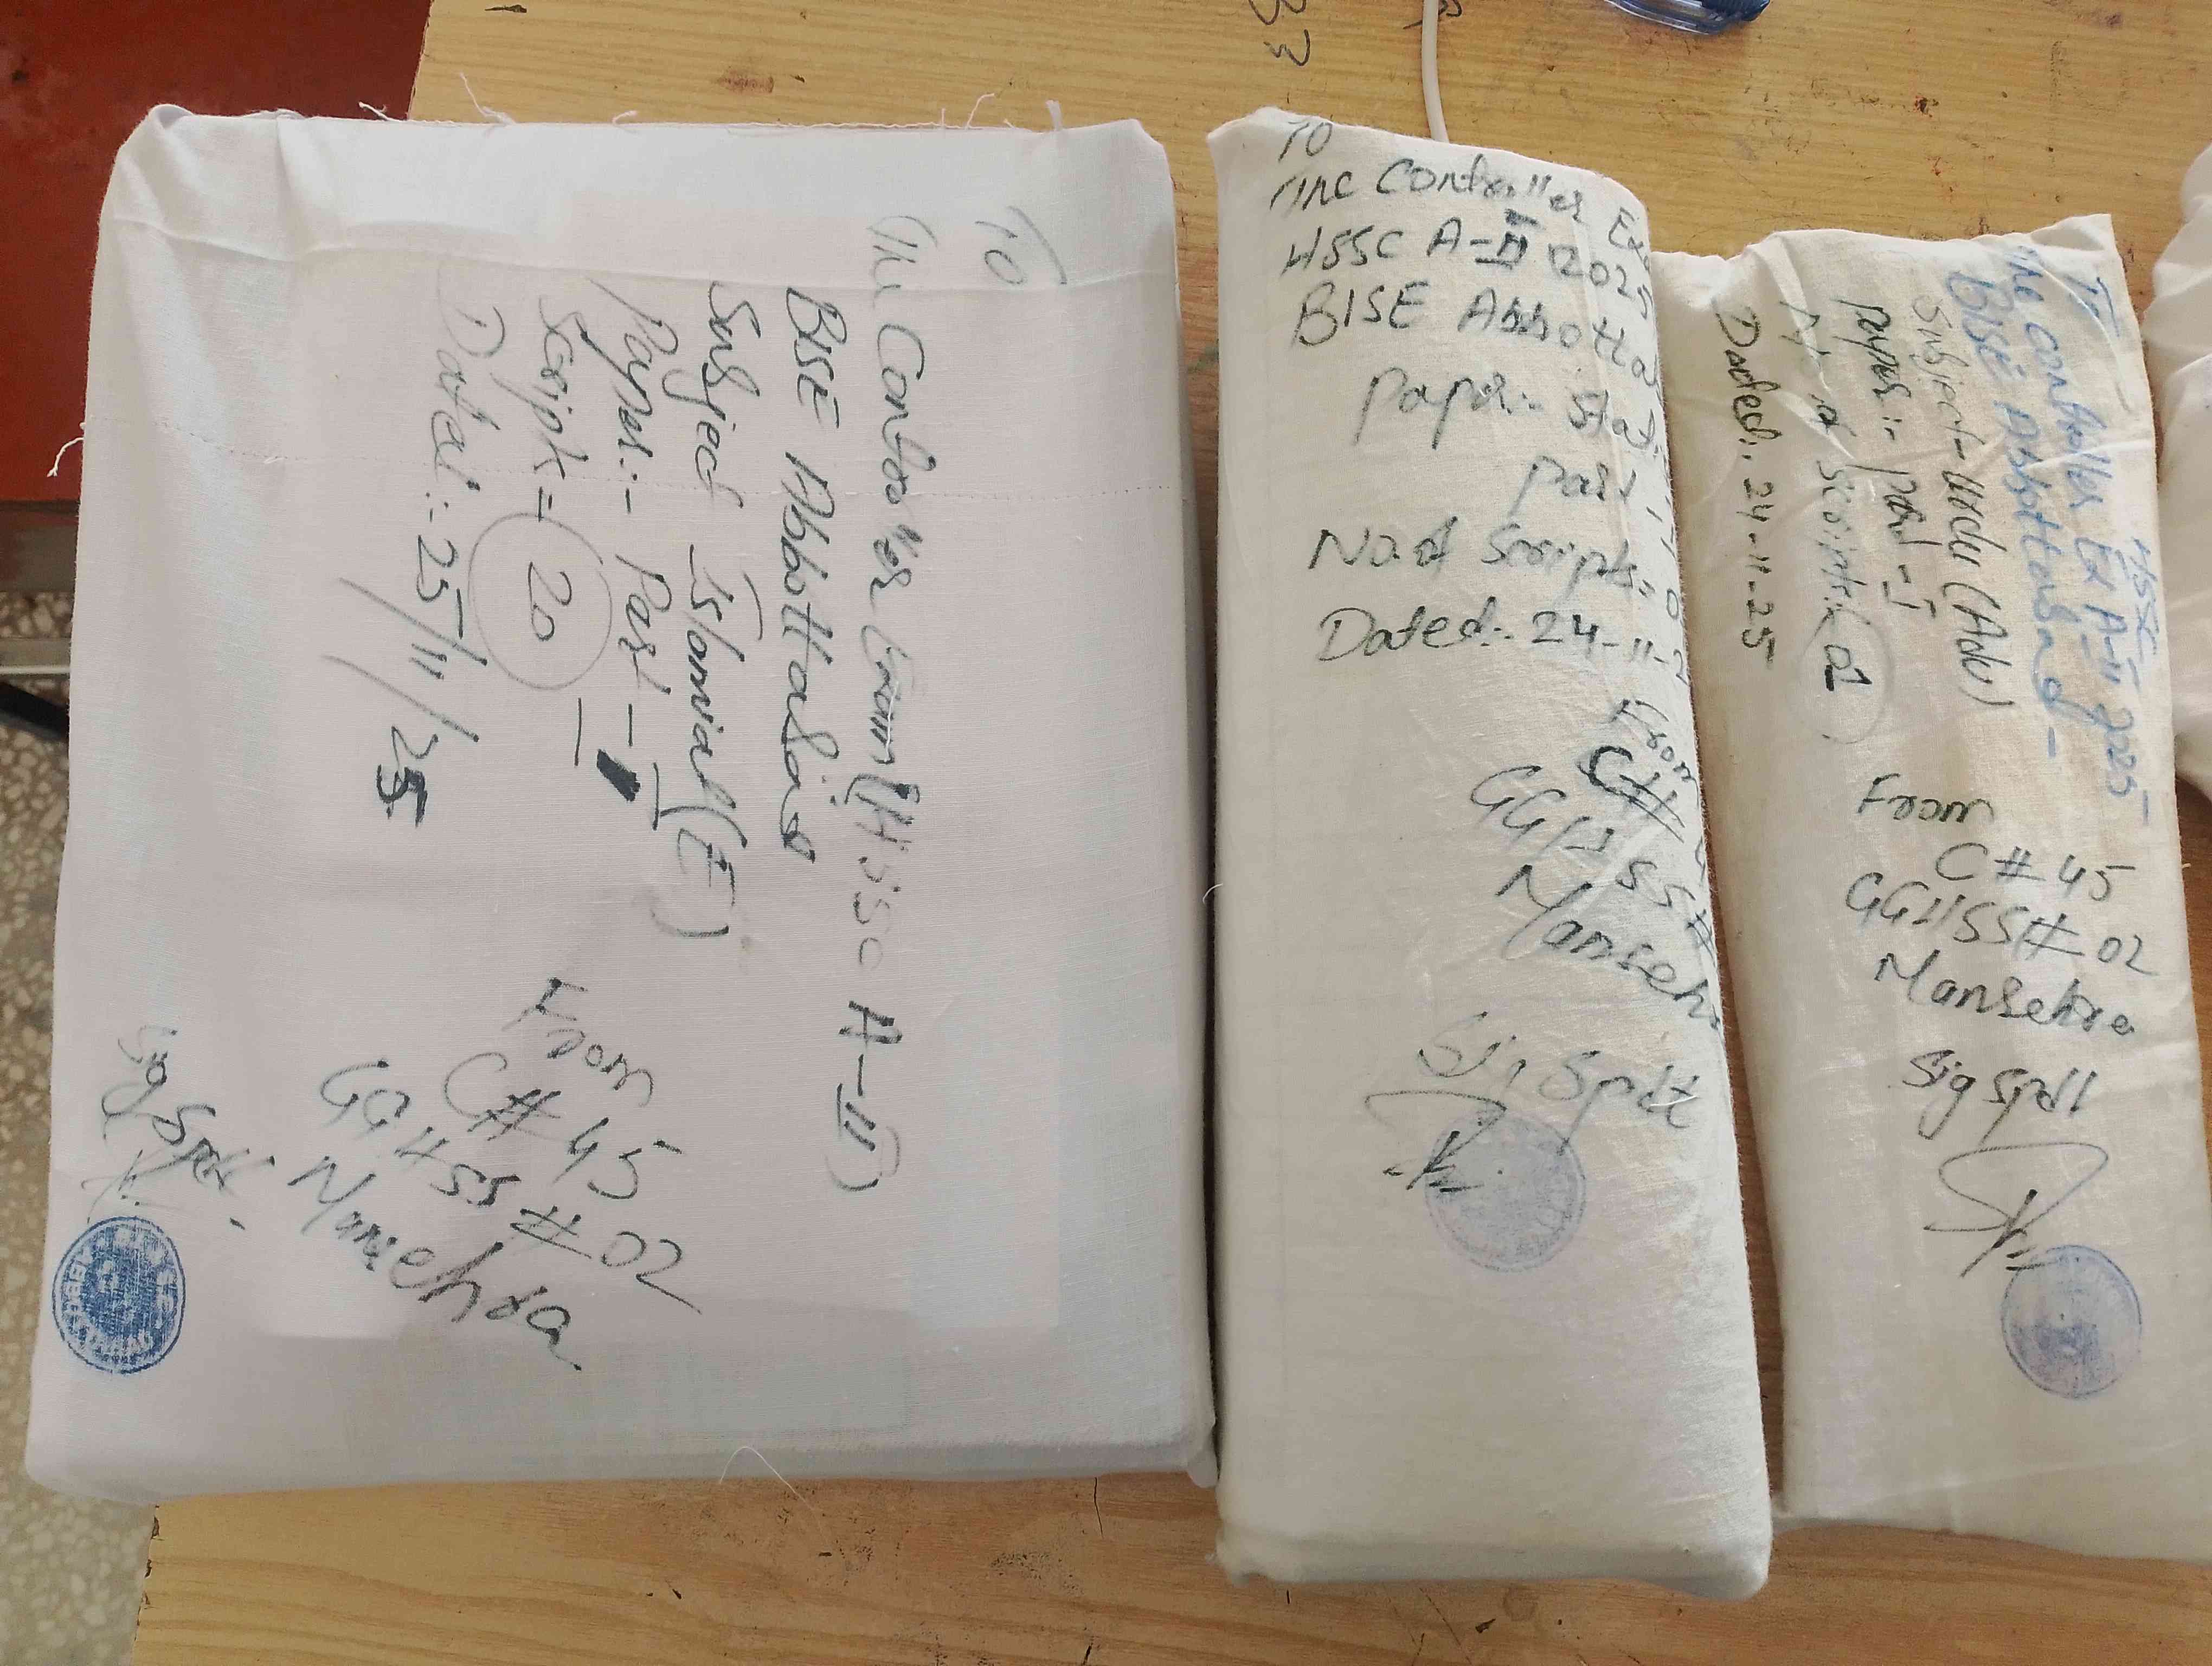 To
The Controller Exam (HSSC A-II)
BISE Abbottabad
Subject Islamiat (E)
Paper:- Part - I
Script = 20
Dated:- 25/11/25
From
C# 45
GGHSS # 02
Mansehra
Sig Spdt.
TO
The Controller Ex
HSSC A-II 2025
BISE Abbotta
Paper:- Stat
Part
No. of Scripts:
Dated:- 24-11-2
From
C#
GGHSS#
Mansehr
Sig Spdt
To
The Controller Ex A-II 2025
HSSC
BISE Abbottabad
Subject- Urdu (Adv)
Paper:- Part - I
of Scripts: 01
Dated:. 24-11-25
From
C # 45
GGHSS# 02
Mansehra
Sig Spdt
33